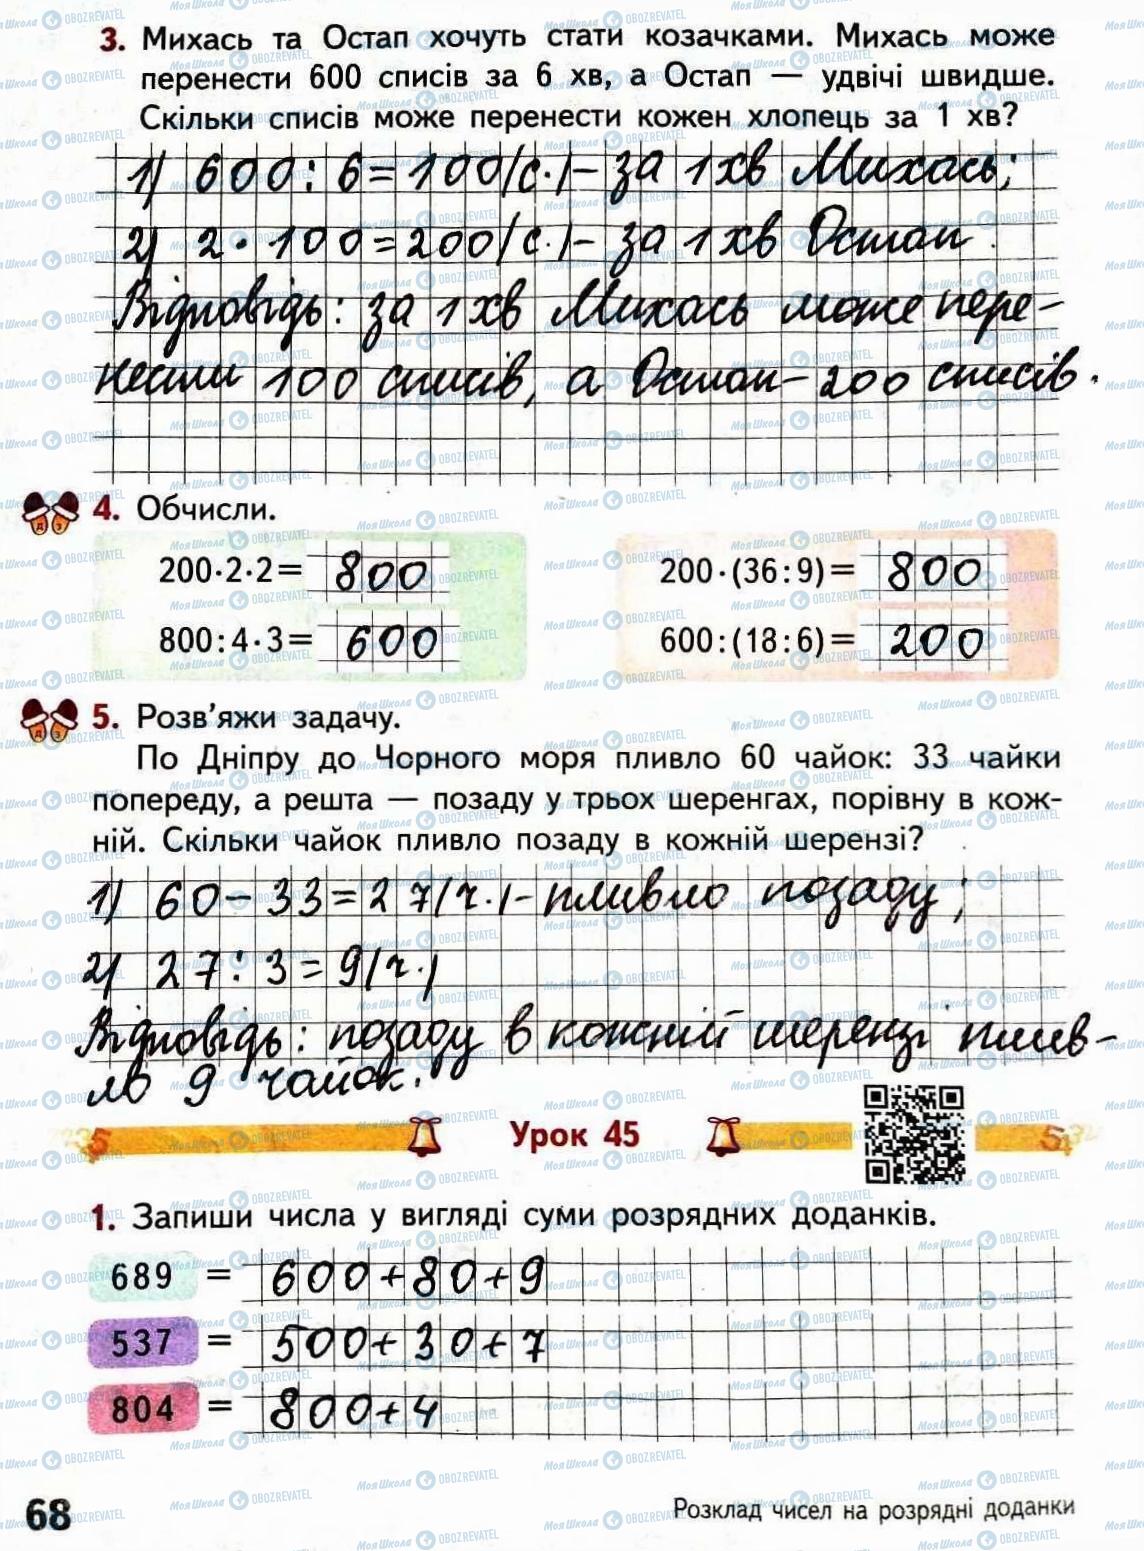 3. Михась та Остап хочуть стати козачками. Михась може
перенести 600 списів за 6 хв, а Остап — удвічі швидше.
Скільки списів може перенести кожен хлопець за 1 хв?
1) 600 : 6 = 100 (с.) – за 1 хв Михась;
2) 2 · 100 = 200 (с.) – за 1 хв Остап.
Відповідь: за 1 хв Михась може пере-
нести 100 списів, а Остап – 200 списів.
4. Обчисли.
200·2·2= 800 200·(36:9)= 800
800:4·3= 600 600:(18:6)= 200
5. Розв’яжи задачу.
По Дніпру до Чорного моря пливло 60 чайок: 33 чайки
попереду, а решта — позаду у трьох шеренгах, порівну в кож-
ній. Скільки чайок пливло позаду в кожній шерензі?
1) 60 – 33 = 27 (ч.) – пливло позаду;
2) 27 : 3 = 9 (ч.)
Відповідь: позаду в кожній шерензі плив-
ло 9 чайок.
Урок 45
1. Запиши числа у вигляді суми розрядних доданків.
689 = 600+80+9
537 = 500+30+7
804 = 800+4
68 Розклад чисел на розрядні доданки
МояШкола OBOZREVATEL